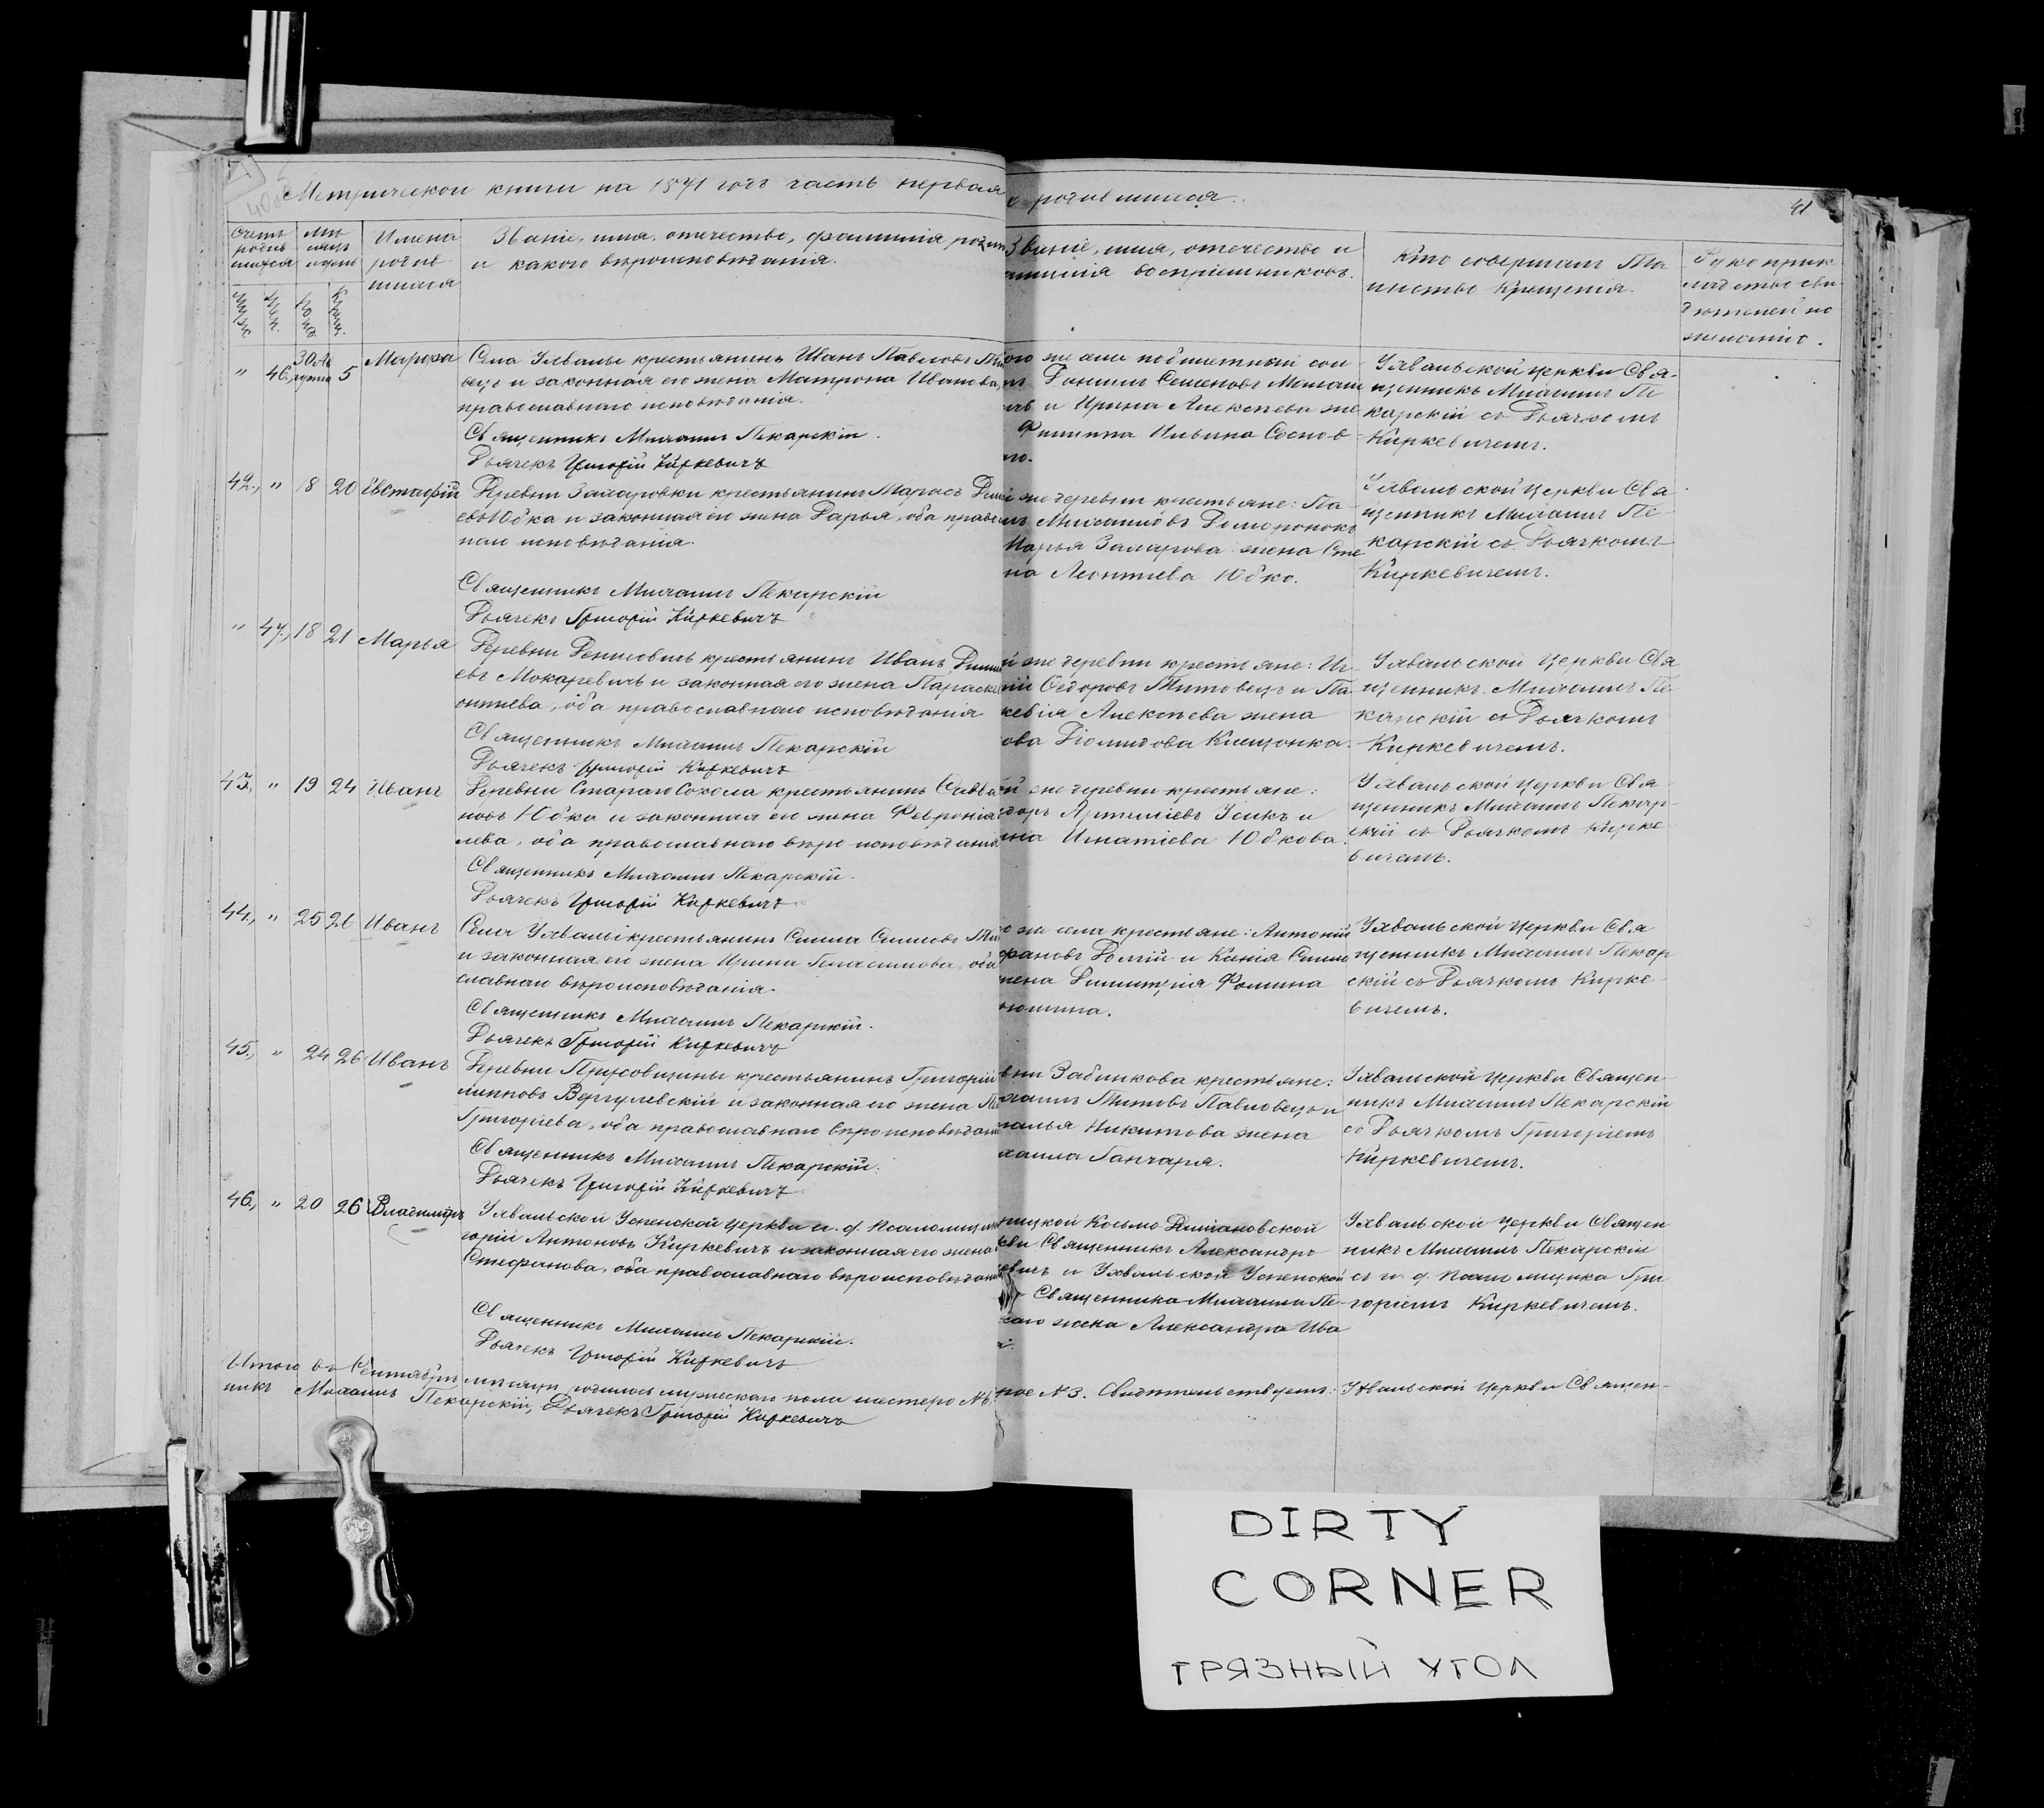 Метрической книги на 1871 годъ часть первая
о родившихся.
41
Счетъ родившихся
Мѣсяцъ и день
Имена родившихся
Званіе, имя, отечество, фамилія родит
и какого вѣроисповѣданія.
Званіе, имя, отечество и
фамилія воспріемниковъ.
Кто совершалъ Та
инство Крещенія.
Рукоприк
ладство сви
дѣтелей по
желанію.
" 46., 30 Ав
густа 5 Марѳа
Села Ухвалы крестьянинъ Иванъ Павловъ
вецъ и законная его жена Матрона Иванова,
православнаго исповѣданія.
Священникъ Михаилъ Пекарскій.
Дьячекъ Григорій Киркевичъ
ого же села
Даніилъ Семеновъ
и Ирина Алексѣева же
Филиппа Ильина Соснов
го.
Ухвальской церкви Свя-
щенникъ Михаилъ Пе
карскій съ Дьячкомъ
Киркевичемъ.
42., " 18 20 Евстафій
Деревни Захаровки крестьянинъ Марко
евъ Юдка и законная его жена Дарья, оба право
наго исповѣданія.
Священникъ Михаилъ Пекарскій
Дьячекъ Григорій Киркевичъ
й же деревни крестьяне: Па
Михайловъ
Марья Захарова жена Сте
на Леонтіева Юдко.
Ухвальской церкви Свя
щенникъ Михаилъ Пе
карскій съ Дьячкомъ
Киркевичемъ.
" 47., 18 21 Марья
Деревни Денисовичь крестьянинъ Иванъ
евъ Мокаревичъ и законная его жена Параске
онтіева, оба православнаго исповѣданія
Священникъ Михаилъ Пекарскій
Дьячекъ Григорій Киркевичъ
й же деревни крестьяне: Иг
тій Ѳедоровъ Титовецъ и Па
кевія Алексѣева жена
ова Діомидова Клещонка.
Ухвальской церкви Свя
щенникъ Михаилъ Пе
карскій съ Дьячкомъ
Киркевичемъ.
43., " 19 24 Иванъ
Деревни Стараго Сокола крестьянинъ Савва
новъ Юдка и законная его жена Февронія
лева, оба православнаго вѣроисповѣданія
Священникъ Михаилъ Пекарскій.
Дьячекъ Григорій Киркевичъ
й же деревни крестьяне:
доръ Артеміевъ Усикъ и
нія Игнатіева Юдкова.
Ухвальской церкви Свя
щенникъ Михаилъ Пекар-
скій съ Дьячкомъ Кирке
вичемъ.
44., " 25 26 Иванъ
Села Ухвалы крестьянинъ Симма Симмовъ
и законная его жена Ирина Герасимова, оба
славнаго вѣроисповѣданія.
Священникъ Михаилъ Пекарскій.
Дьячекъ Григорій Киркевичъ
о же села крестьяне: Антоній
фановъ Долгій и Ксенія Симмо
жена Димитрія Ѳомина
Ухвальской церкви Свя
щенникъ Михаилъ Пекар
скій съ Дьячкомъ Кирке
вичемъ.
45., " 24 26 Иванъ
Деревни Прусовщины крестьянинъ Григорій
липповъ Вергулевскій и законная его жена
Григоріева, оба православнаго вѣроисповѣдані
Священникъ Михаилъ Пекарскій.
Дьячекъ Григорій Киркевичъ
вни Забинкова крестьяне:
хаилъ Титовъ Павловецъ и
талья Никитова жена
хаила Ганчаря.
Ухвальской церкви Священ
никъ Михаилъ Пекарскій
съ Дьячкомъ Григоріемъ
Киркевичемъ.
46., " 20 26 Владиміръ
Ухвальской Успенской церкви и. д. псаломщика
горій Антоновъ Киркевичъ и законная его жена
Стефанова, оба православнаго вѣроисповѣдані
Священникъ Михаилъ Пекарскій.
Дьячекъ Григорій Киркевичъ
пицкой Косьмо Даміановской
кви Священникъ Александръ
евичъ и Ухвальской Успенской
Священника Михаила Пе-
скаго жена Александра Ива
Ухвальской церкви Священ
никъ Михаилъ Пекарскій
съ и. д. псаломщика Гри
горіемъ Киркевичемъ.
Итого въ Сентябрѣ мѣсяцѣ родилось мужескаго пола шестеро №6.
ское №3. Свидѣтельствуемъ: Ухвальской церкви Священ-
никъ Михаилъ Пекарскій, Дьячекъ Григорій Киркевичъ
DIRTY
CORNER
ГРЯЗНЫЙ УГОЛ